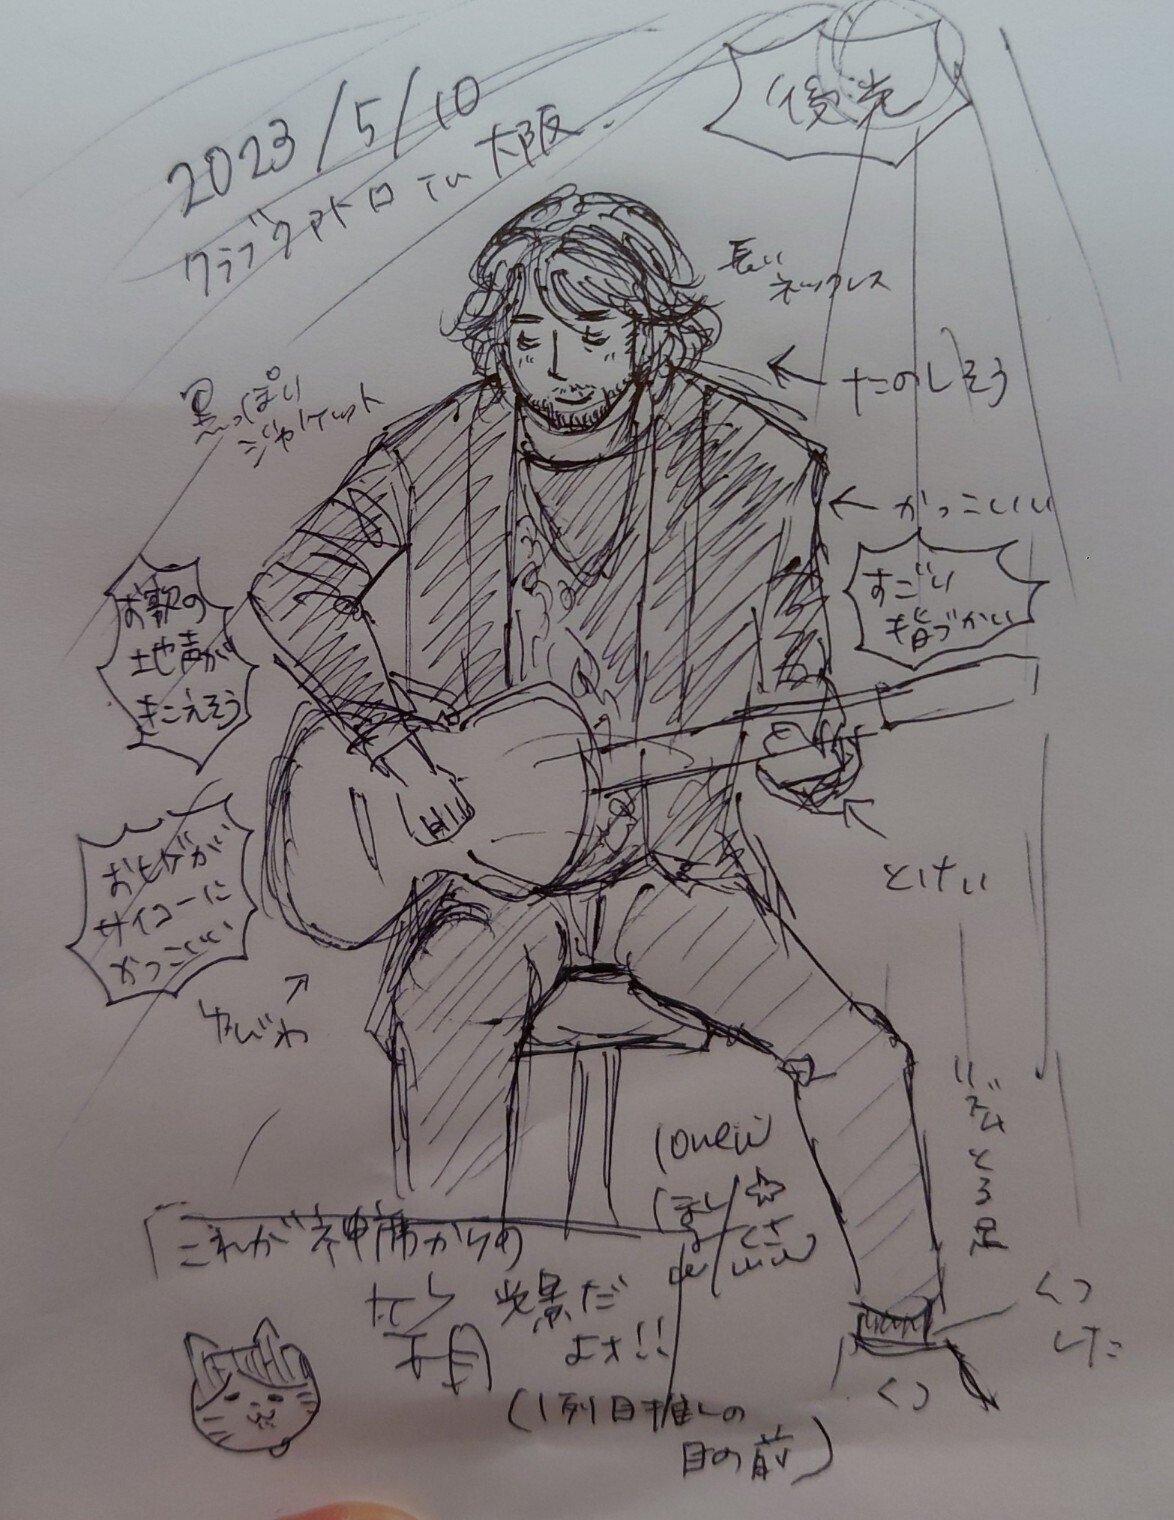 2023/5/10
クラブクアトロ in 大阪.
後光
長い
ネックレス
黒っぽい
ジャケット
← たのしそう
← かっこいい
すごい
指づかい
お歌の
地声が
きこえそう
おヒゲが
サイコーに
かっこいい
とけい
ゆびわ
リズムとる足
くつ
した
くつ
「これが神席からの
光景だ
よォ!!
(1列目推しの
目の前)